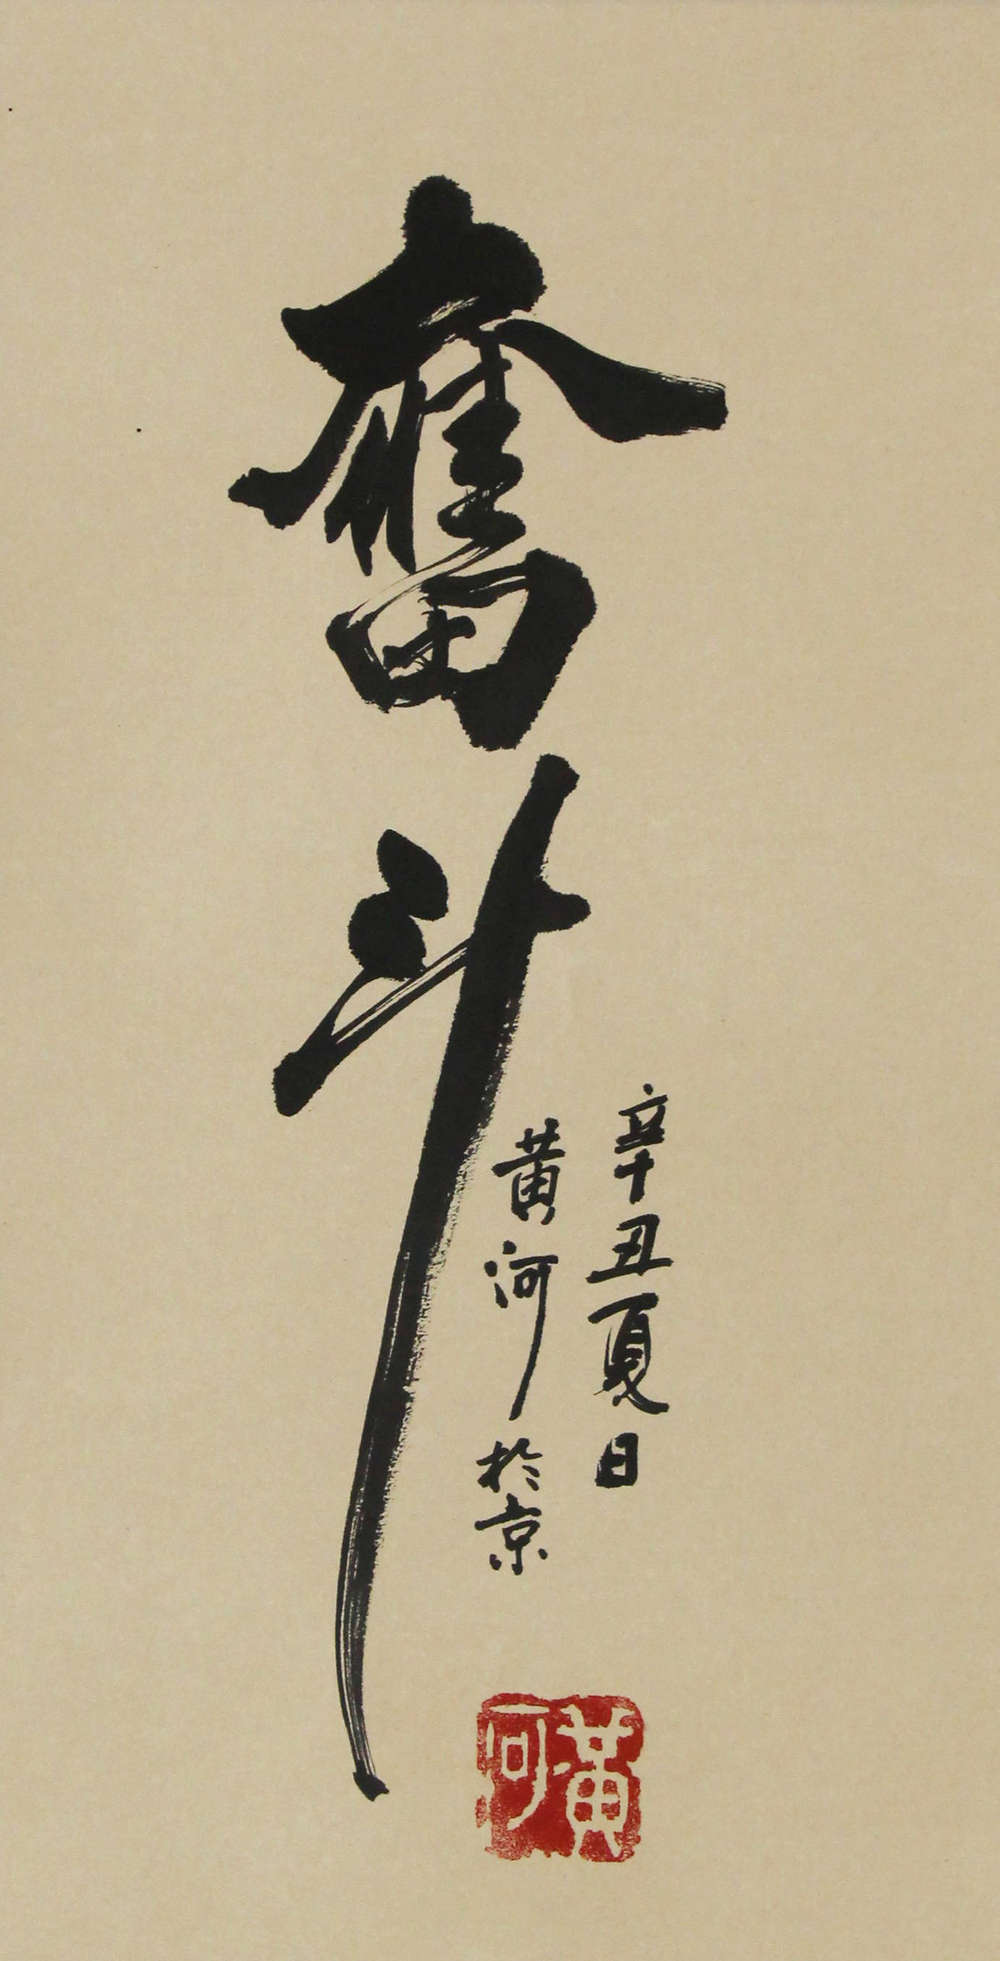 奮斗
辛丑夏日
黄河於京
黃河